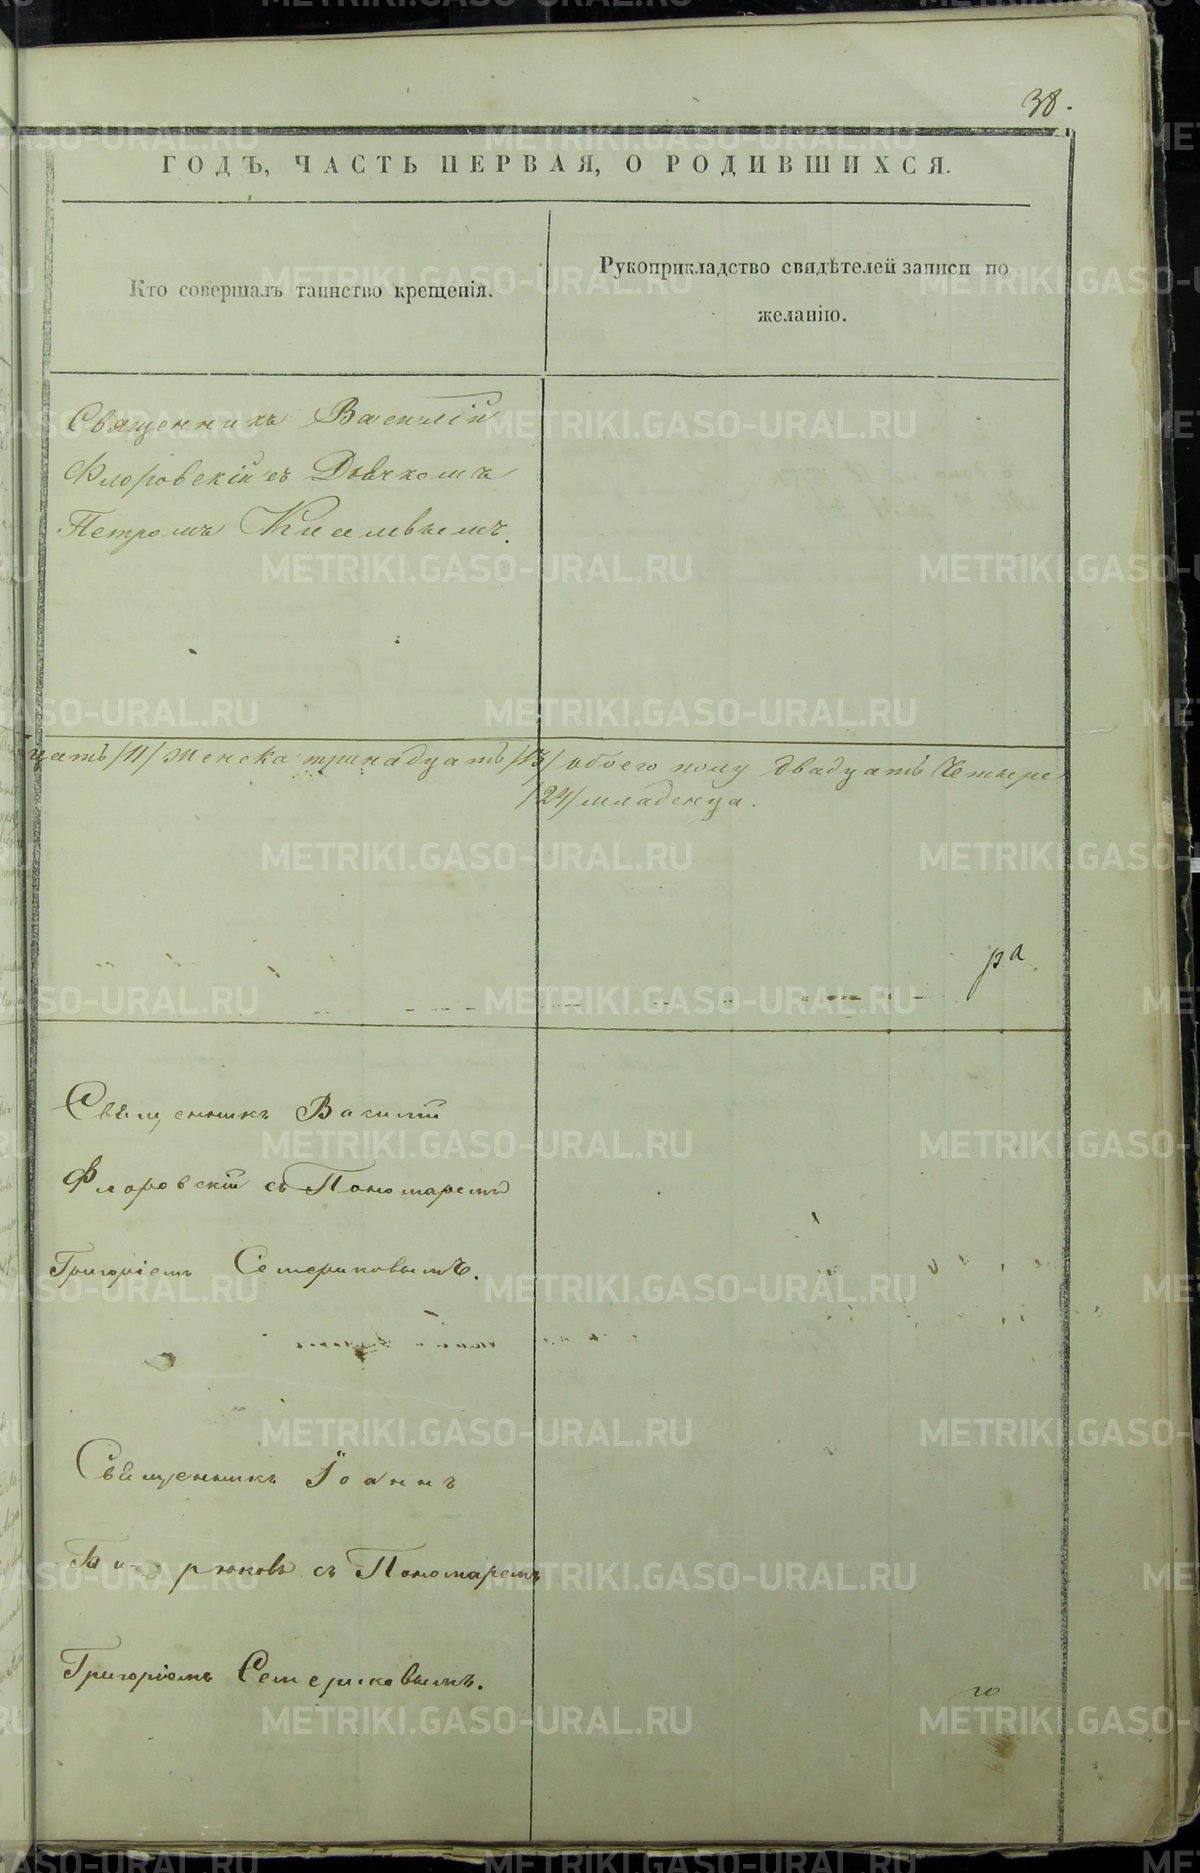 38.
ГОДЪ, ЧАСТЬ ПЕРВАЯ, О РОДИВШИХСЯ.
Кто совершалъ таинство крещенія.
Рукоприкладство свидѣтелей записи по
желанію.
Священникъ Василій
Флоровскій съ Дьячкомъ
Петромъ Киселевымъ.
цать /11/ женска тринадцать /13/ обоего полу двадцать четыре
/24/ младенца.
Священникъ Василій
Флоровскій съ Пономаремъ
Григоріемъ Семериковымъ.
Священникъ Іоаннъ
съ Пономаремъ
Григоріемъ Семериковымъ.
METRIKI.GASO-URAL.RU